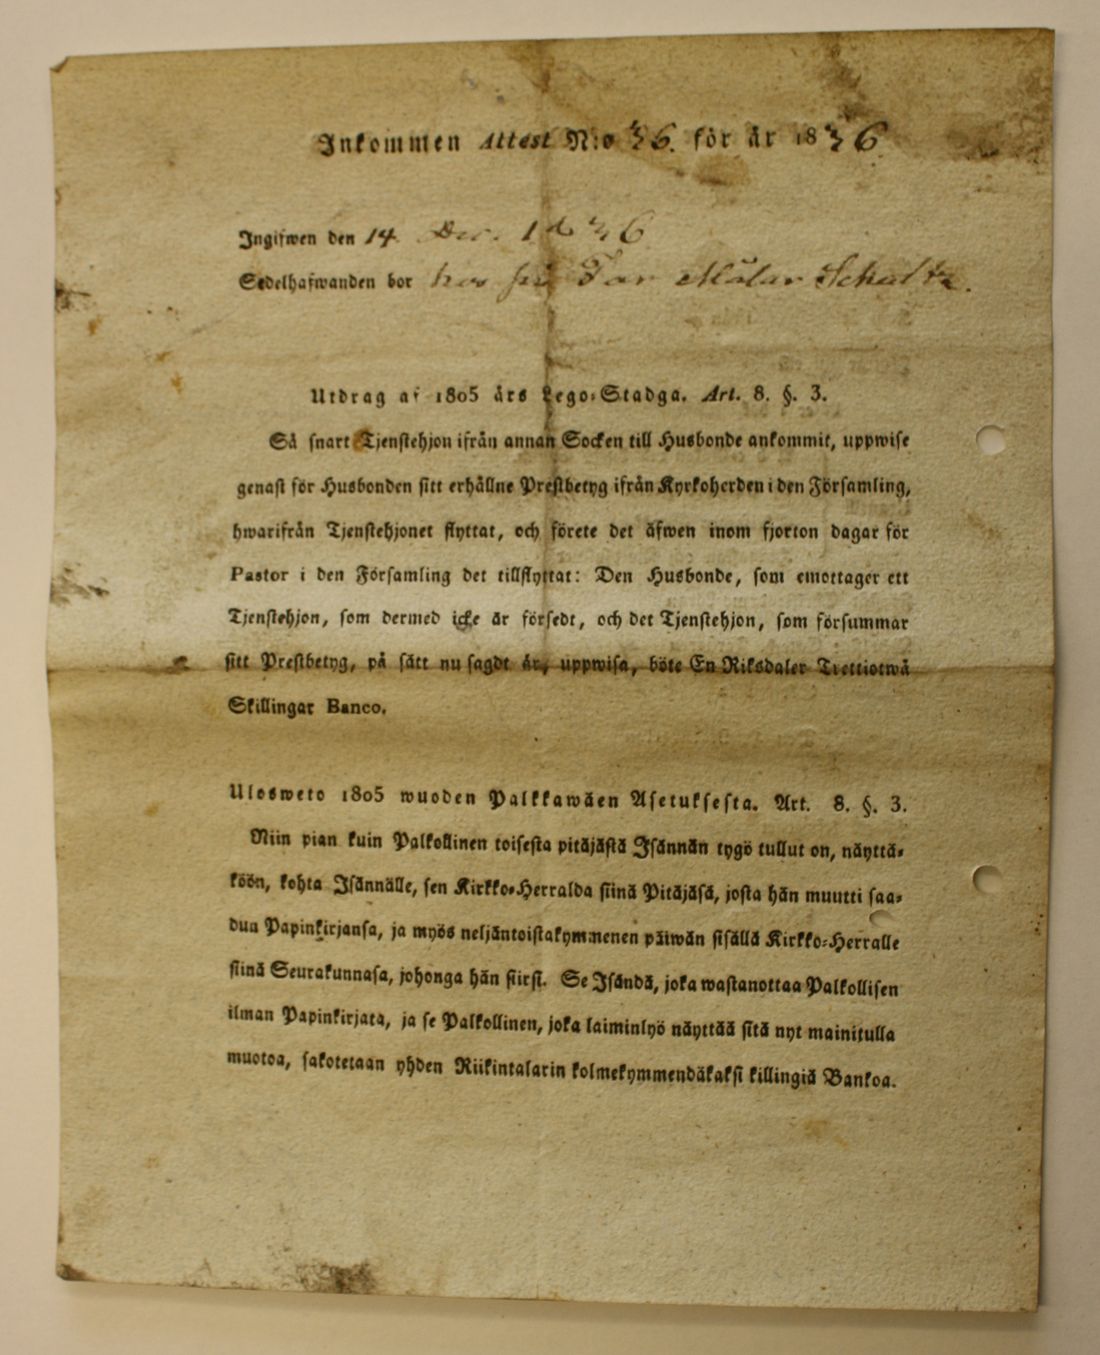 Inkommen Attest N:o 36. för år 1836
Ingifwen den 14 Dec. 1836
Sedelhafwanden bor hos Målar Schultz.
Utdrag af 1805 års Lego-Stadga. Art. 8. §. 3.
Så snart Tjenstehjon ifrån annan Socken till Husbonde ankommit, uppwise
genast för Husbonden sitt erhållne Prestbetyg ifrån Kyrkoherden i den Församling,
hwarifrån Tjenstehjonet flyttat, och förete det äfwen inom fjorton dagar för
Pastor i den Församling det tillflyttat: Den Husbonde, som emottager ett
Tjenstehjon, som dermed icke är försedt, och det Tjenstehjon, som försummar
sitt Prestbetyg, på sätt nu sagdt är, uppwisa, böte En Riksdaler Trettiotwå
Skillingar Banco.
Ulosweto 1805 wuoden Palkkawäen Asetuksesta. Art. 8. §. 3.
Niin pian kuin Palkollinen toisesta pitäjästä Isännän tygö tullut on, näyttä-
köön, kohta Isännälle, sen Kirkko-Herralda siinä Pitäjäsä, josta hän muutti saa-
dun Papinkirjansa, ja myös neljäntoistakymmenen päiwän sisällä Kirkko-Herralle
siinä Seurakunnasa, johonga hän siirsi. Se Isändä, joka wastanottaa Palkollisen
ilman Papinkirjata, ja se Palkollinen, joka laiminlyö näyttää sitä nyt mainitulla
muotoa, sakotetaan yhden Riikintalarin kolmekymmendäkaksi killingiä Bankoa.